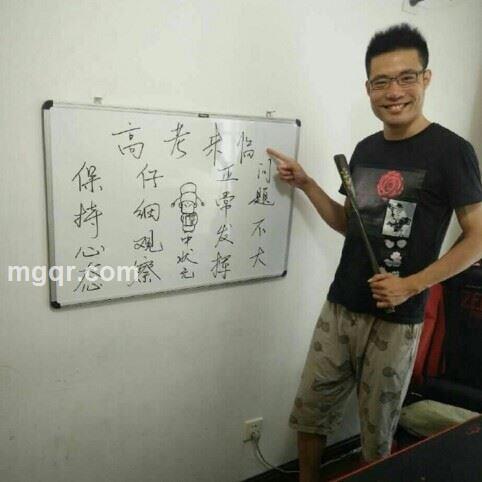 高考来临
保持心态
仔细观察
中状元
正常发挥
问题不大
mgqr.com